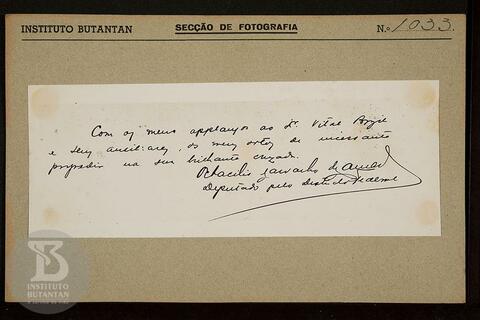 INSTITUTO BUTANTAN SECÇÃO DE FOTOGRAFIA N.º 1033.
Com os meus applausos ao Dr. Vital Brazil
e seus auxiliares, os meus votos de incessante
progredir na sua brilhante cruzada.
Octacilio Carvalho de
Deputado pelo Districto Federal
INSTITUTO
BUTANTAN
A SERVIÇO DA VIDA